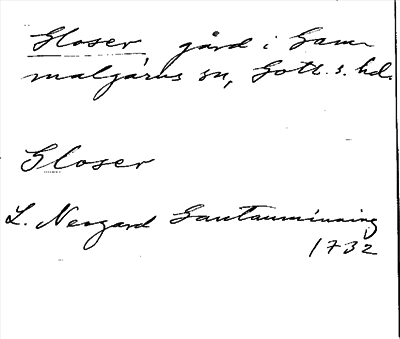 Gloser gård i Gam-
malgarns sn, Gotl. s. hd.
Gloser
L. Neogard Gautauminning
1732